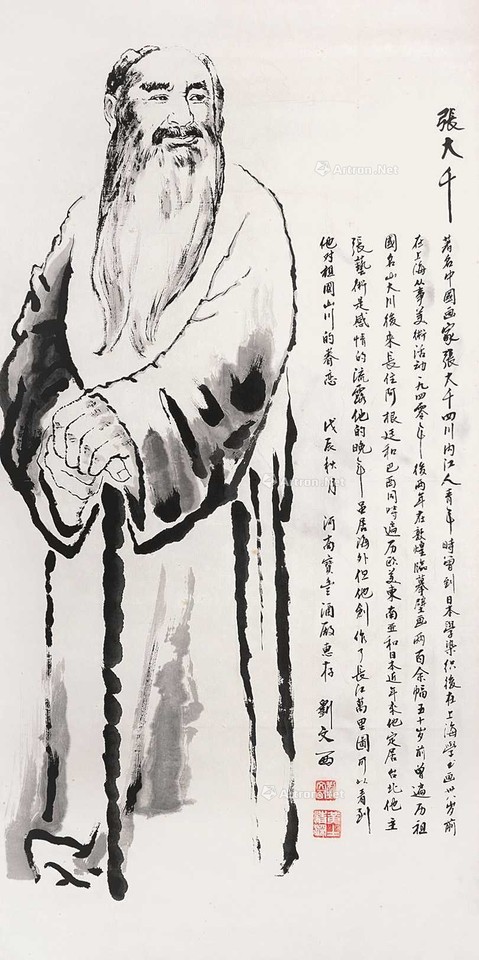 張大千
著名中国画家張大千四川內江人青年時曾到日本学染织後在上海学画卅八岁前
在上海从事美術活动一九四零年後两年在敦煌臨摹壁画两百余幅五十岁前曾遍历祖
國名山大川後來長住阿根廷和巴西同時遍历欧美東南亚和日本近年来他定居台北他主
張藝術是感情的流露他的晚年虽居海外但他創作了長江萬里圖可以看到
他对祖國山川的眷恋 戊辰秋月 河南寶丰酒厰惠存 劉文西
Artron.Net
Artron.Net
Artron.Net
Artron.Net